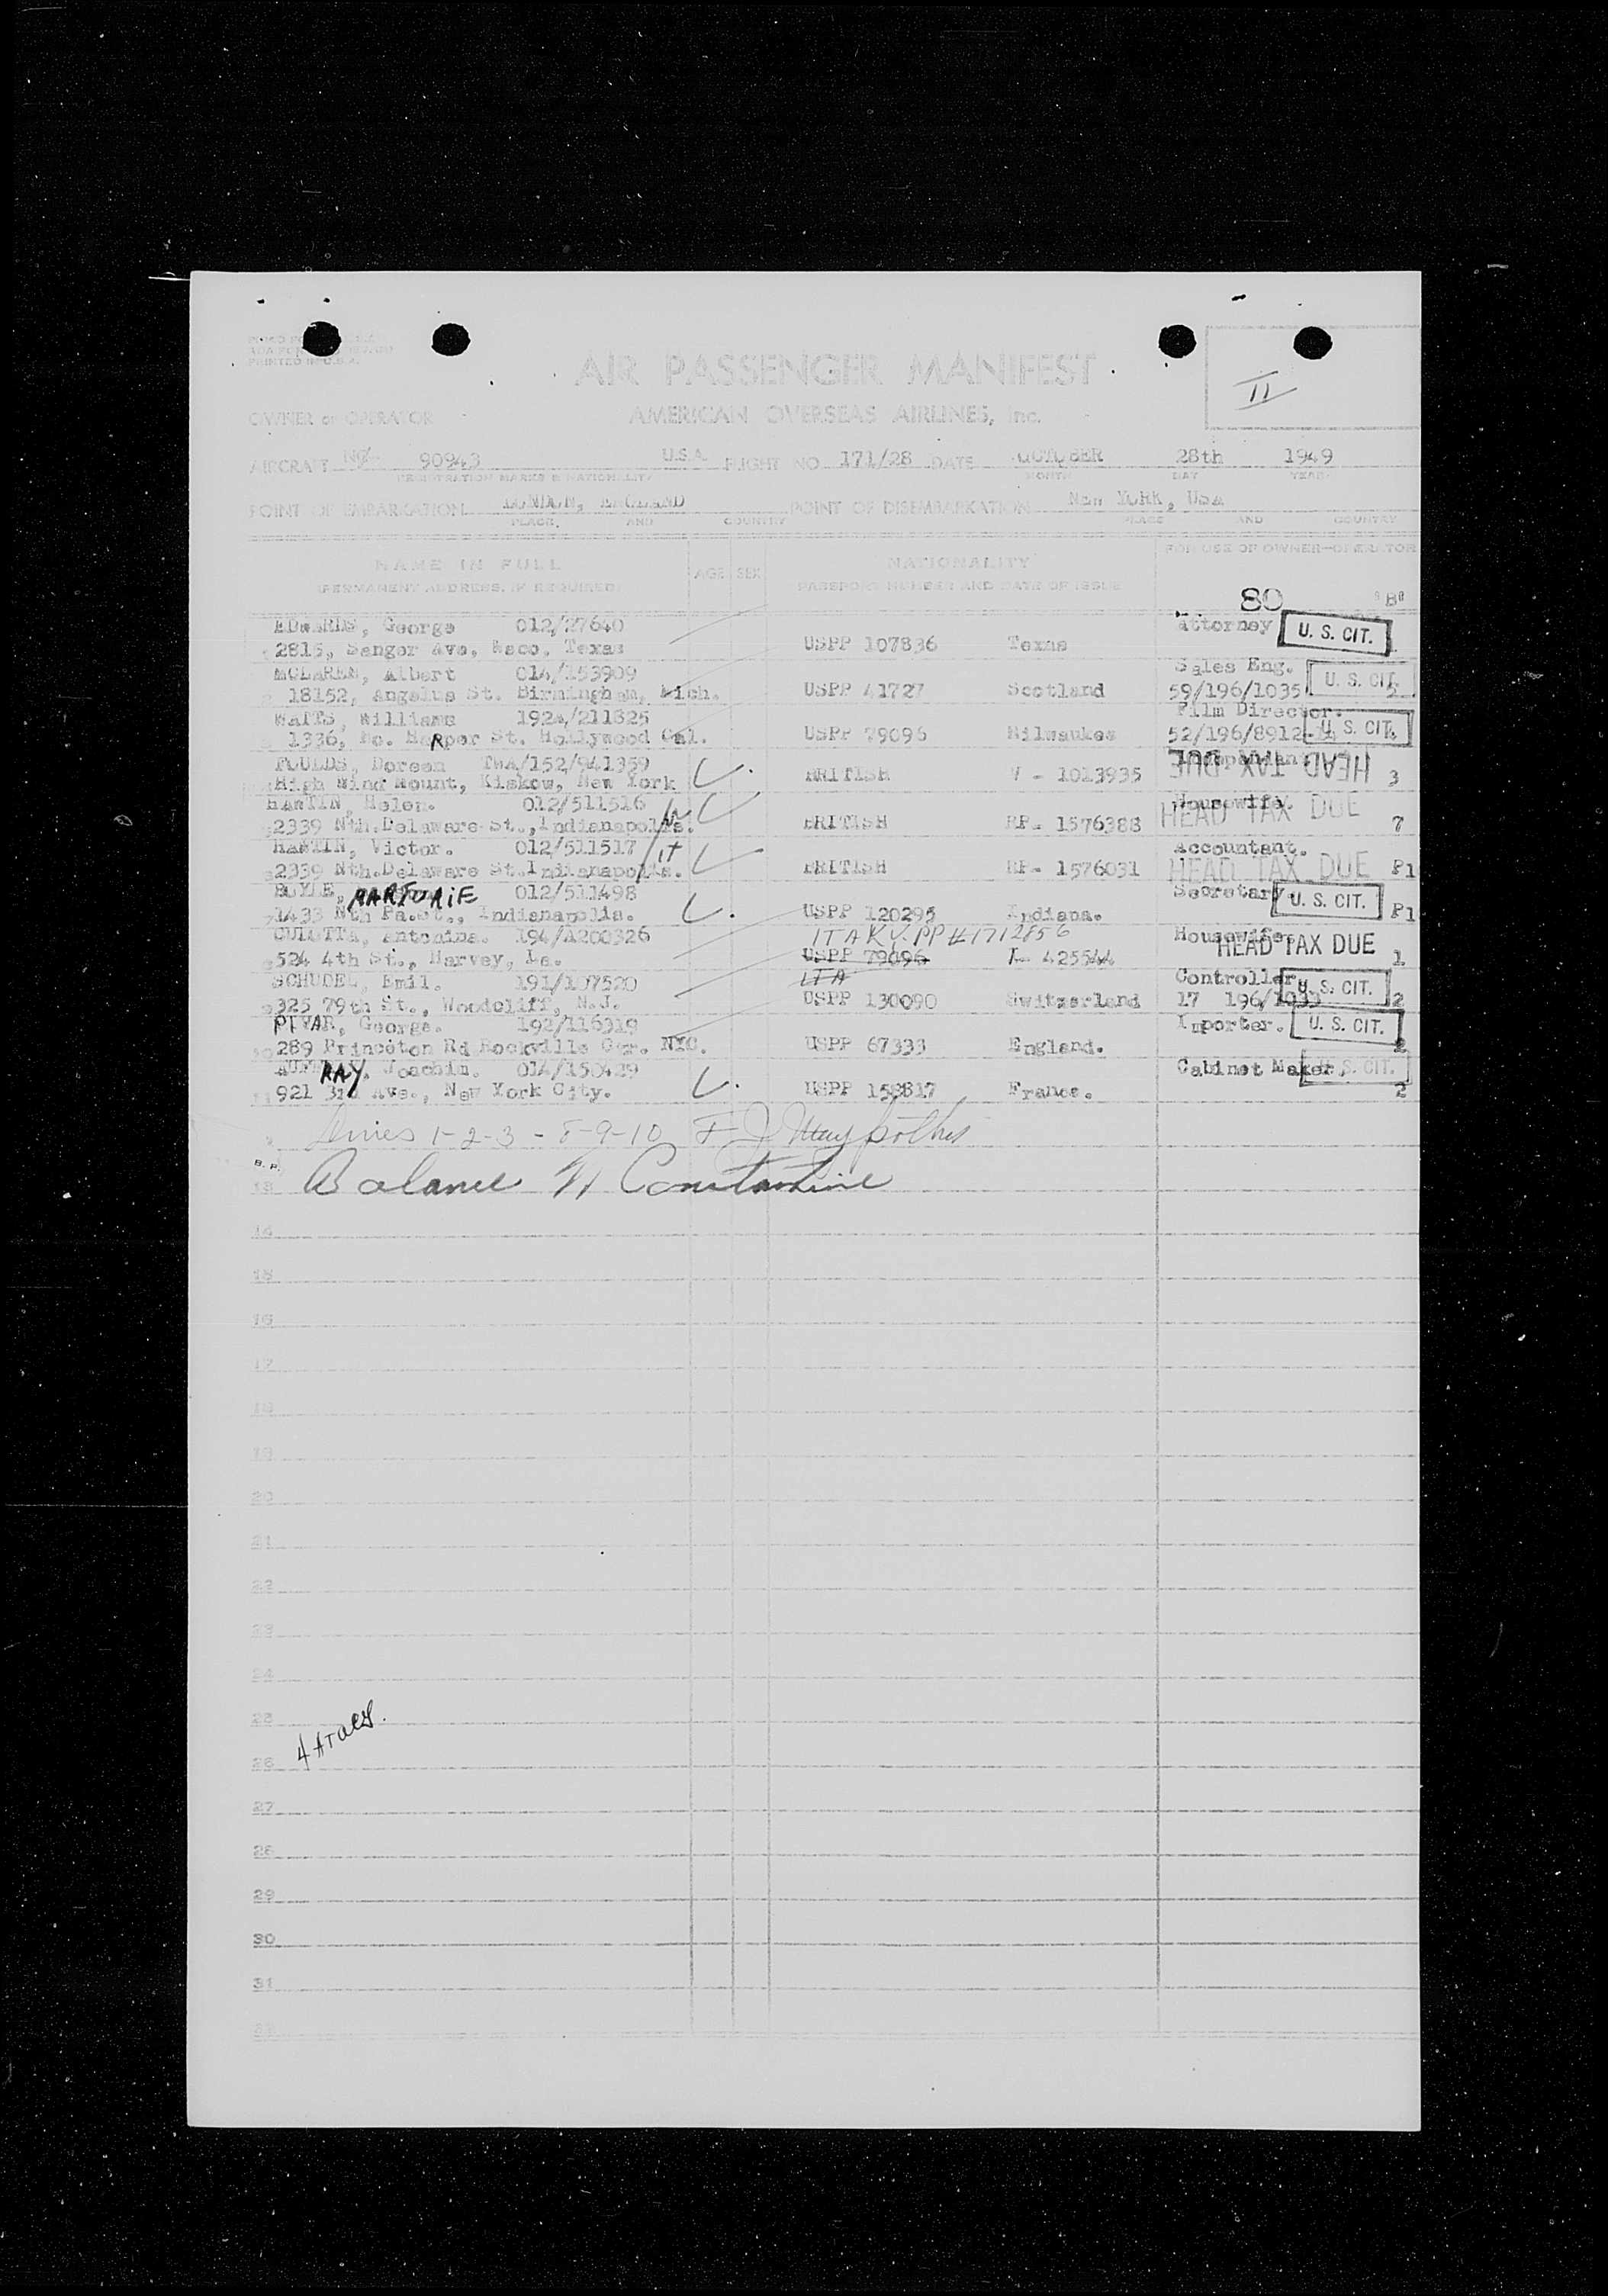 PRINTED IN U.S.A.
AIR PASSENGER MANIFEST
II
OWNER or OPERATOR AMERICAN OVERSEAS AIRLINES, Inc.
AIRCRAFT No. 90943 U.S.A. FLIGHT NO 171/28 DATE OCTOBER 28th 1949
REGISTRATION MARKS & NATIONALITY MONTH DAY YEAR
POINT OF EMBARKATION LONDON, ENGLAND POINT OF DISEMBARKATION New YORK, USA
PLACE AND COUNTRY PLACE AND COUNTRY
NAME IN FULL AGE SEX NATIONALITY FOR USE OF OWNER-OPERATOR
(PERMANENT ADDRESS, IF REQUIRED) PASSPORT NUMBER AND DATE OF ISSUE
80 "B"
EDWARDS, George 012/27640 Attorney U. S. CIT.
2815, Sanger Ave, Waco, Texas USPP 107836 Texas
MCLAREN, Albert 01A/153909 Sales Eng. U. S. CIT.
18152, Angelus St. Birmingham, Mich. USPP 41727 Scotland 59/196/1035
WATTS, Williams 192A/211825 Film Director. U. S. CIT.
1336, No. HaRper St. Hollywood Cal. USPP 79096 Milwaukee 52/196/8912
FOULDS, Doreen TWA/152/941359 HEAD TAX DUE
High Wind Mount, Kiskow, New York BRITISH V - 1013935 3
MARTIN, Helen. 012/511516 Housewife.
2339 Nth.Delaware St.,Indianapolis. BRITISH RP- 1576388 HEAD TAX DUE 7
MARTIN, Victor. 012/511517 Accountant.
2339 Nth.Delaware St.Indianapolis. BRITISH RP- 1576031 HEAD TAX DUE P1
BOYLE, MARJORIE 012/511498 Secretary U. S. CIT.
1433 Nth Pa.St., Indianapolis. USPP 120295 Indiana. P1
ITALY. PP #1712856
Antonina. 194/A200326 Housewife. HEAD TAX DUE
524 4th St., Harvey, La. USPP 79096 I- 425544 1
ITA
SCHUDEL, Emil. 191/107520 Controller. U. S. CIT.
325 79th St., Woodcliff, N.J. USPP 130090 Switzerland 17 196/1033 2
PIVAR, George. 192/116319 Importer. U. S. CIT.
289 Princeton Rd Rockville Cer. NYC. USPP 67333 England. 2
RAY, Joachim. 01A/150429 Cabinet Maker. U. S. CIT.
921 3rd Ave., New York City. USPP 158817 France. 2
Lines 1-2-3 - 8-9-10
B. P.
13 Balance Constantine
14
15
16
17
18
19
20
21
22
23
24
25
26
27
28
29
30
31
32